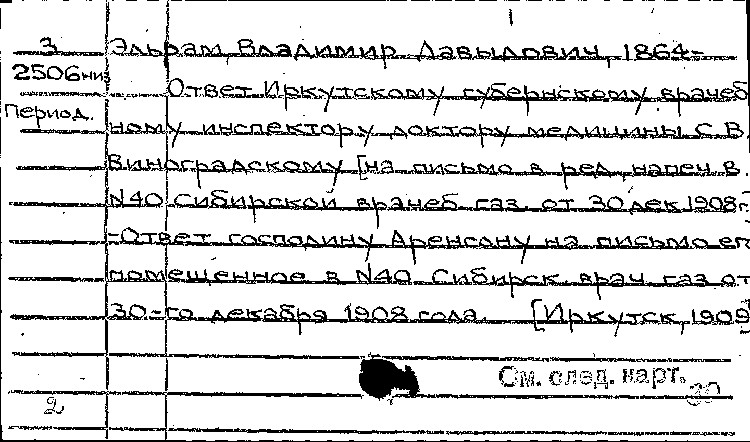 3 Эльрам, Владимир Давыдович, 1864-
2506 низ Ответ Иркутскому губернскому врачеб
Период. ному инспектору доктору медицины С.В.
Виноградскому [на письмо в ред., напеч. в
N40 Сибирской врачеб. газ. от 30 дек. 1908г.
-Ответ господину Аренсону на письмо его
помещенное в N40 Сибирск. врач. газ. от
30-го декабря 1908 года. [Иркутск, 1909]
См. след. карт.
2